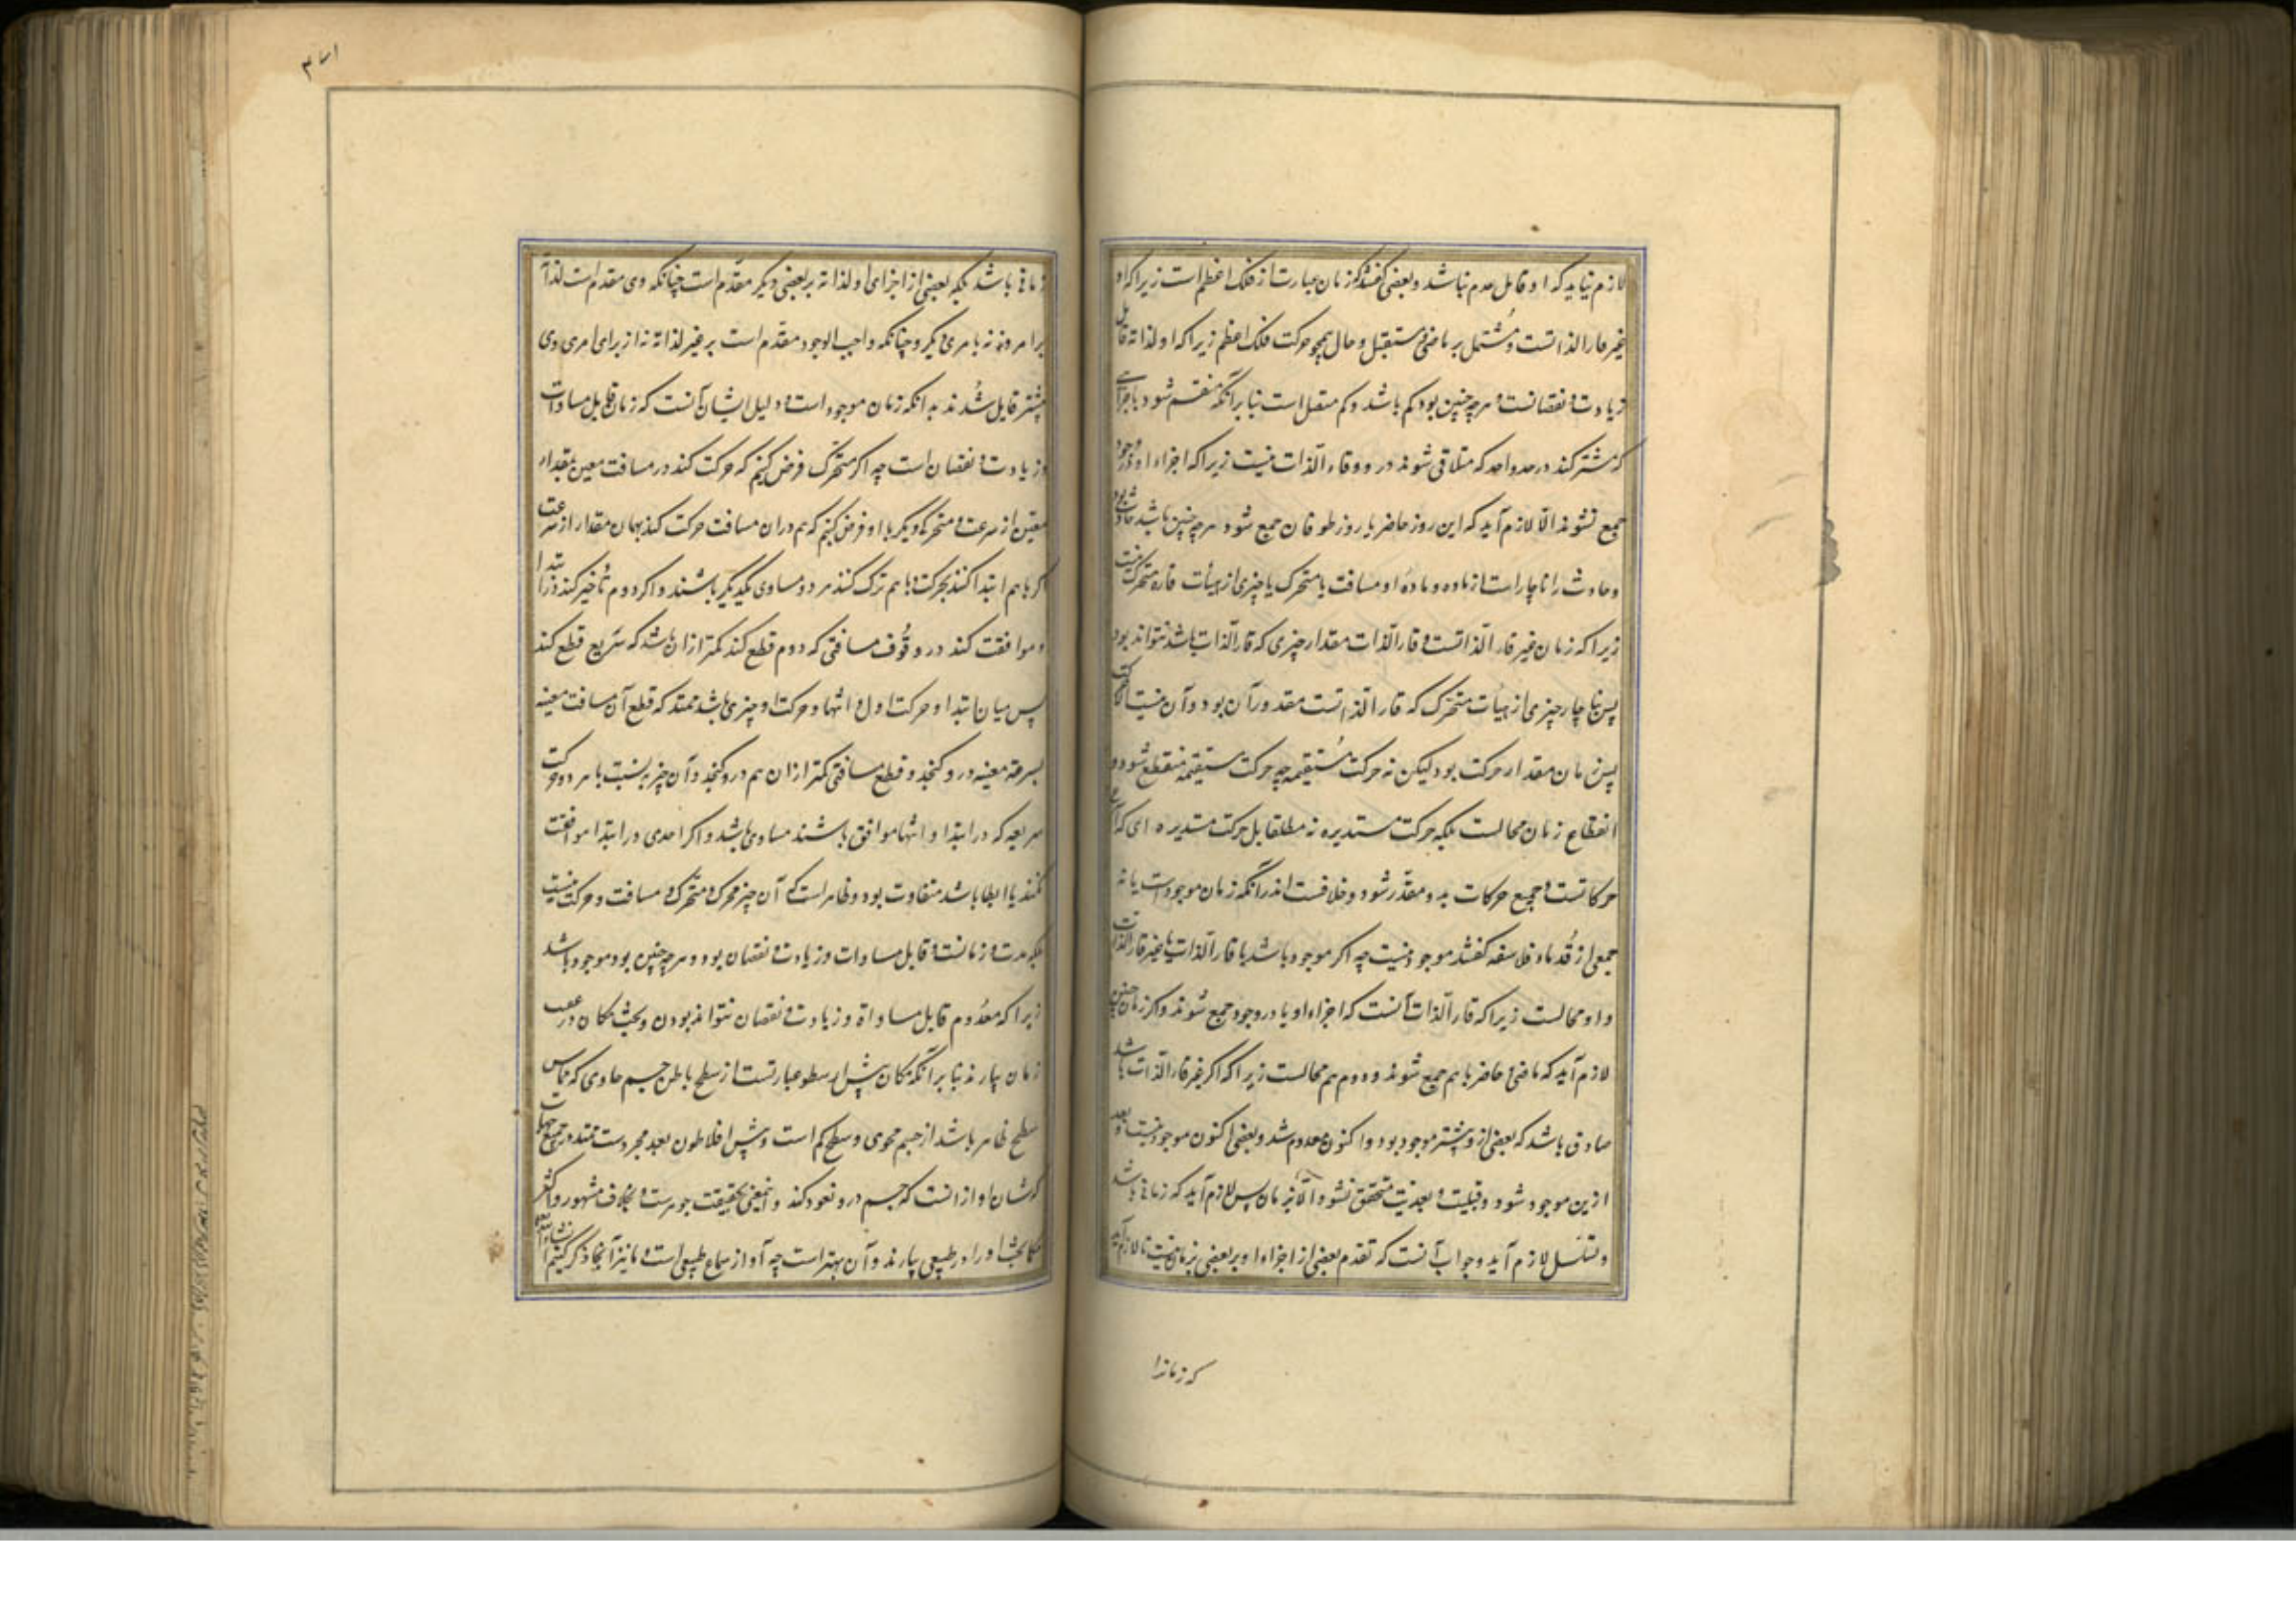 لازم نیاید که او قابل عدم نباشد و بعضی گفتند که زمان عبارت از فلک اعظم است زیرا که او
غیر قار الذاتست و مشتمل بر ماضی و مستقبل و حال همچو حرکت فلک اعظم زیرا که او لذاته قابل
زیادت و نقصانست و هرچه چنین بود کم باشد و کم متصل است بنا بر آنکه منقسم شود باجزای
که مشترکند در حد واحد که متلاقی شوند درو و قار الذات نیست زیرا که اجزاء او در وجود
جمع نشوند و الا لازم آید که این روز حاضر با روز طوفان جمع شود و هرچه چنین باشد حادث بود
و حادث را ناچار است از ماده و ماده او مسافت یا متحرک یا چیزی از هیأت قاره متحرک نیست
زیرا که زمان غیر قار الذاتست و قار الذات مقدار چیزی که قار الذات باشد نتواند بود
پس ناچار چیزی از هیأت متحرک که قار الذاتست مقدور آن بود و آن نیست الا حرکت
پس زمان مقدار حرکت بود لیکن نه حرکت مستقیمه چه حرکت مستقیمه منقطع شود و
انقطاع زمان محالست بلکه حرکت مستدیره نه مطلقا بل حرکت مستدیره ای که
حرکاتست و جمیع حرکات بدو مقدر شود و خلافست اندر آنکه زمان موجود است یا نه
جمعی از قدماء فلاسفه گفتند موجود نیست چه اگر موجود باشد یا قار الذات یا غیر قار الذات
و اول محالست زیرا که قار الذات آنست که اجزاء او با در وجود جمع شوند و اگر زمان چنین
لازم آید که ماضی و حاضر با هم جمع شوند و دوم هم محالست زیرا که اگر غیر قار الذات باشد
صادق باشد که بعضی از و پیشتر موجود بود و اکنون معدوم شد و بعضی اکنون موجود نیست و بعد
ازین موجود شود و قبلیت و بعدیت متحقق نشود الا بزمان پس لازم آید که زمانی باشد
و تسلسل لازم آید و جواب آنست که تقدم بعضی از اجزاء او بر بعضی بزمان نیست تا لازم آید
که زمانرا
۳۷۱
زمانی باشد بلکه بعضی از اجزای او لذاته بر بعضی دیگر مقدم است چنانکه دی مقدم است لذاته
بر امروز نه بامری دیگر و چنانکه واجب الوجود مقدم است بر غیر لذاته نه از برای امری و
پیشتر قایل شدند بدانکه زمان موجود است و دلیل ایشان آنست که زمان قابل مساوات
و زیادت و نقصان است چه اگر متحرک فرض کنیم که حرکت کند در مسافت معین بمقدار
معین از سرعت و متحرکی دیگر با او فرض کنیم که هم در آن مسافت حرکت کند بهمان مقدار از سرعت
اگر با هم ابتدا کنند بحرکت و با هم ترک کنند هر دو مساوی یکدیگر باشند و اگر دوم تأخیر کند در ابتدا
و موافقت کند در وقوف مسافتی که دوم قطع کند کمتر از آن باشد که سریع قطع کند
پس میان ابتداء و حرکت اول و انتهاء حرکت او چیزی باشد ممتد که قطع آن مسافت معینه
بسرعة معینه درو گنجد و قطع مسافتی کمتر از آن هم درو گنجد و آن چیز به نسبت با هر دو حرکت
سریعه که در ابتدا و انتها موافق باشند مساوی باشد و اگر احدی در ابتدا موافقت
نکند یا ابطا باشد متفاوت بود و ظاهر است که آن چیز محرک و متحرک و مسافت و حرکت نیست
بلکه مدت و زمانست و قابل مساوات و زیادت و نقصان بود و هرچه چنین بود موجود باشد
زیرا که معدوم قابل مساواة و زیادت و نقصان نتواند بودن و بحث مکان در عقب
زمان بیارند بنا بر آنکه مکان پیش ارسطو عبارتست از سطح باطن جسم حاوی که مماس
سطح ظاهر باشد از جسم محوی و سطح کم است و پیش افلاطون بعد مجردست ممتد در جمیع جهات
که شان او از آنست که جسم درو نفوذ کند و این معنی بحقیقت جوهرست و بخلاف مشهور و اکثر
مکان بحث او را در طبیعی بیارند و آن بهتر است چه او از سماع طبیعی است و ما نیز آنجا ذکر کنیم انشاء الله